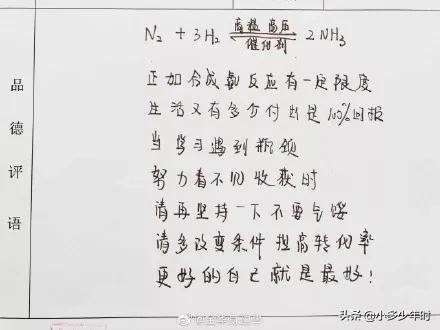 品德评语
高温 高压
N₂ + 3H₂ ⇌ 2NH₃
催化剂
正如合成氨反应有一定限度
生活又有多少付出是100%回报
当学习遇到瓶颈
努力看不见收获时
请再坚持一下不要气馁
请多改变条件 提高转化率
更好的自己就是最好!
头条 @小多少年时